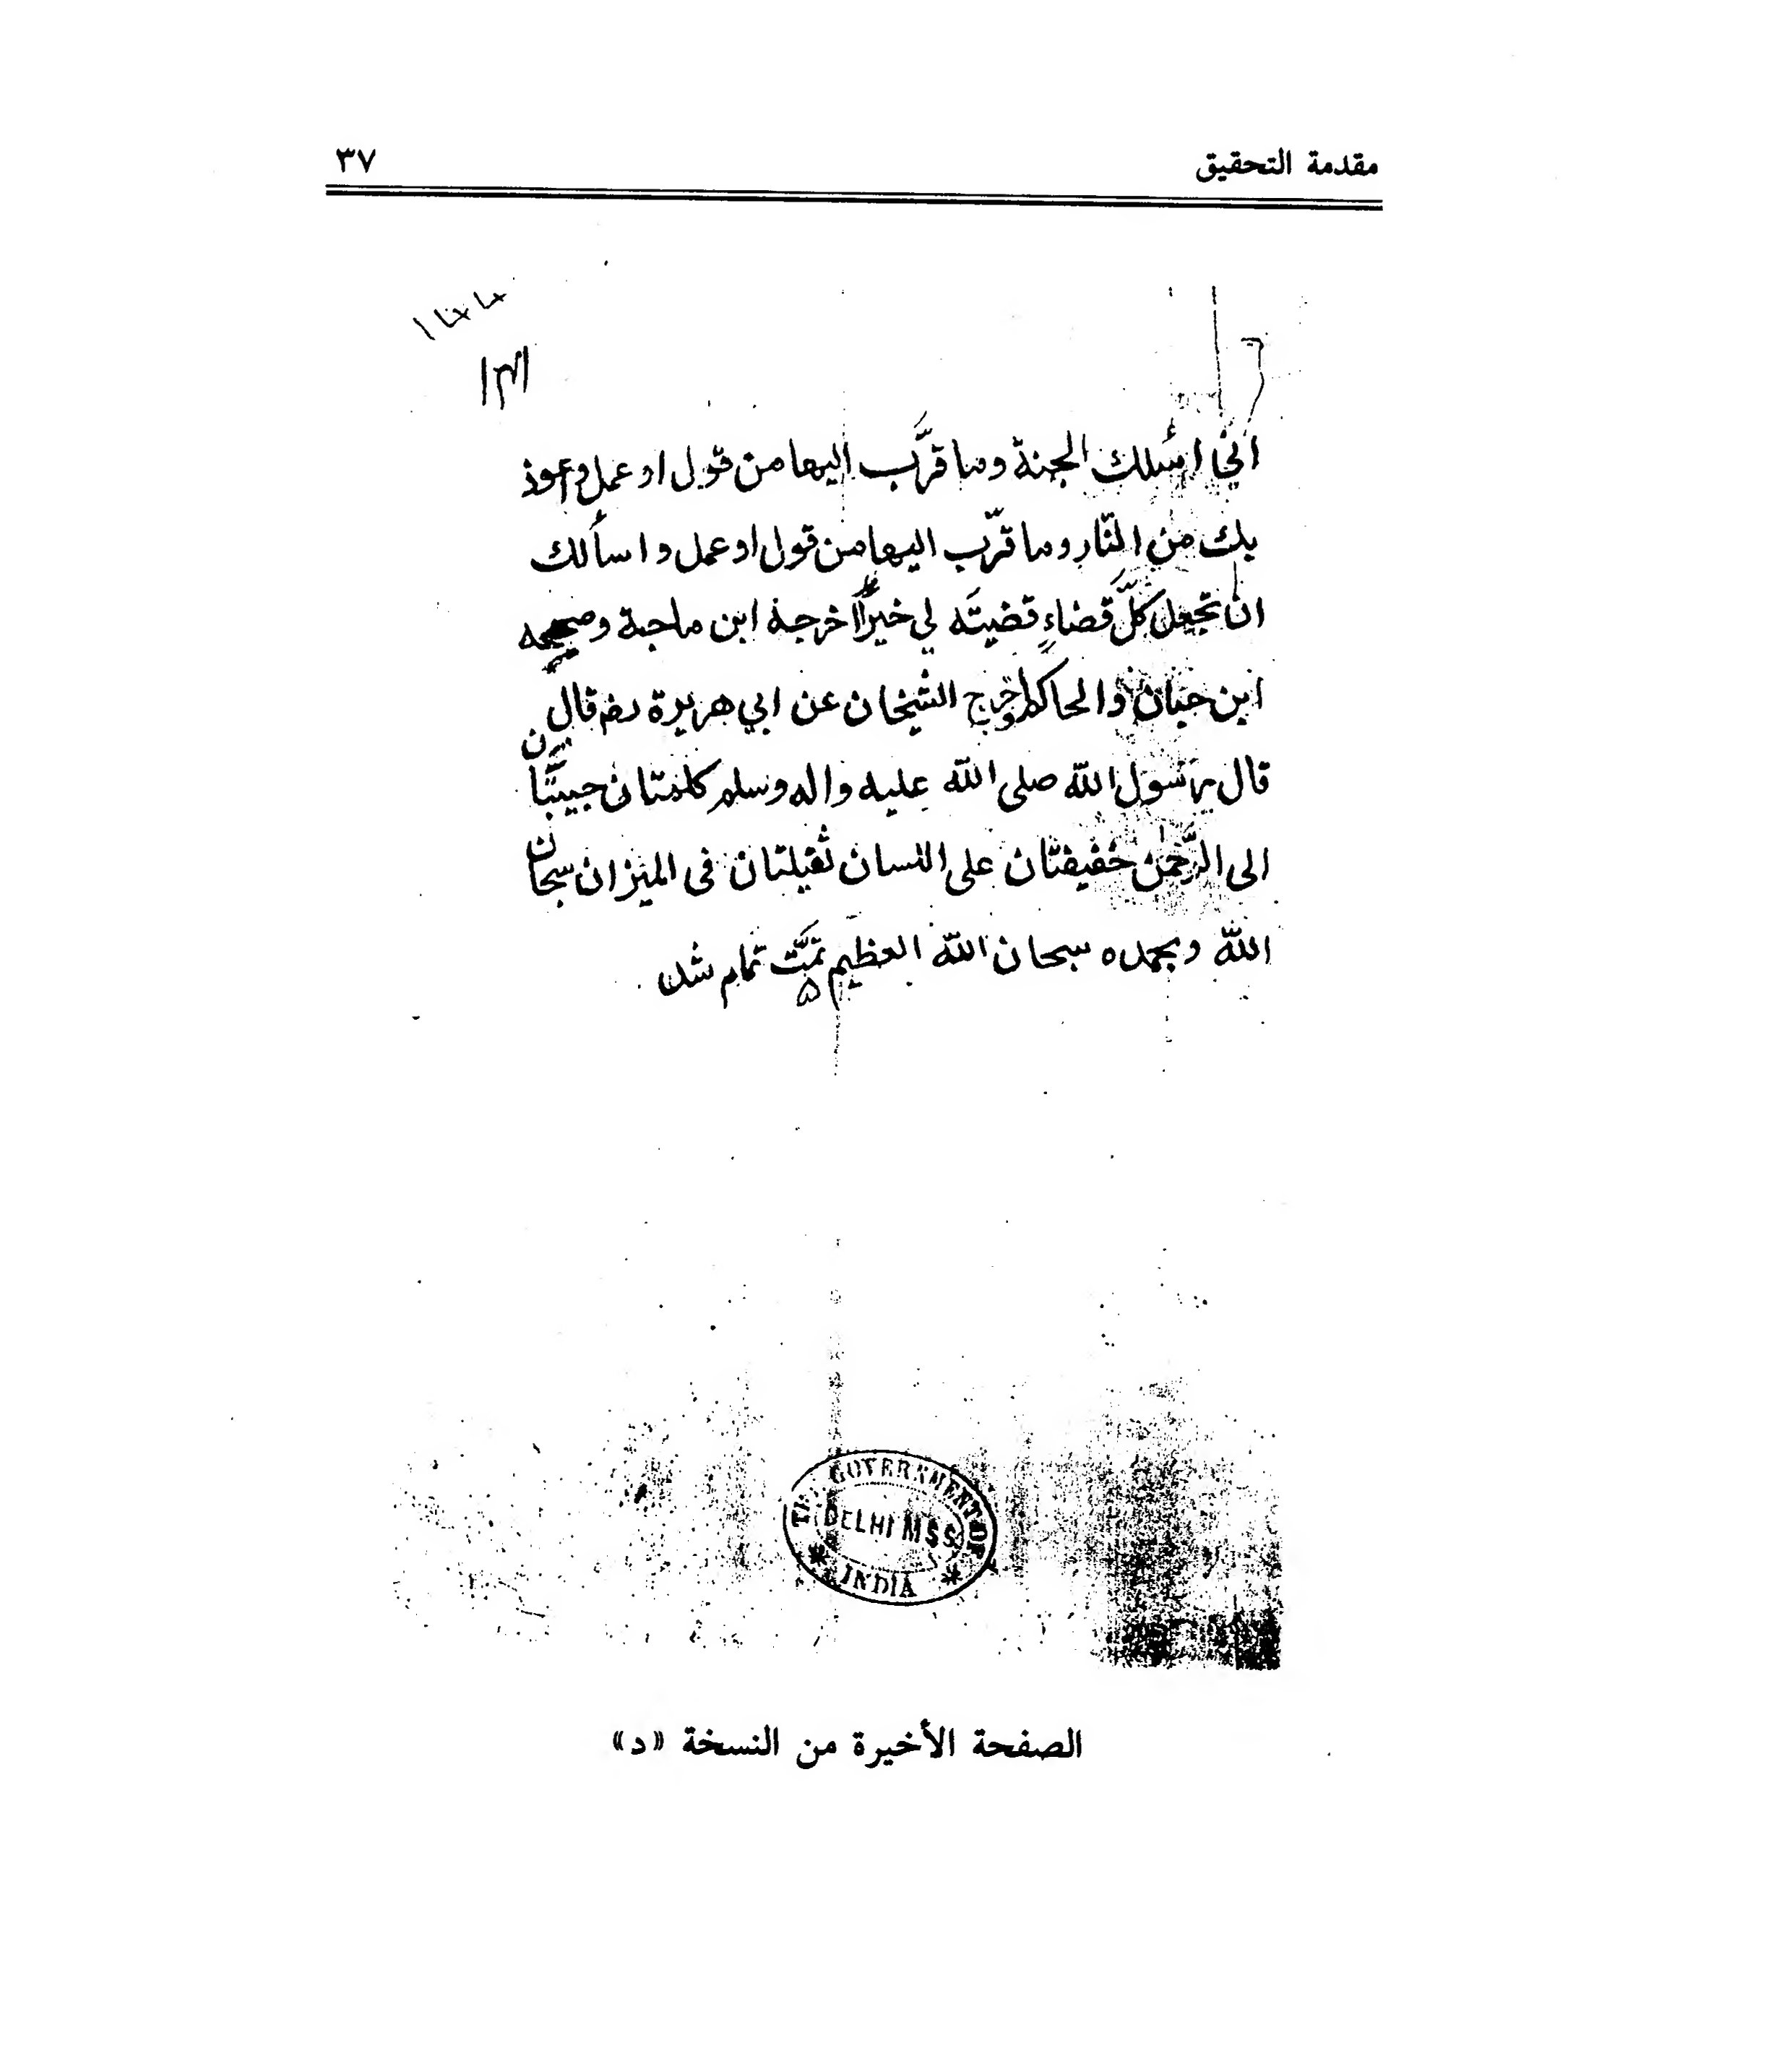 مقدمة التحقيق ٣٧
اني اسٔلك الجنة وما قرَّب اليها من قول او عمل واعوذ
بك من النّار وما قرّب اليها من قول او عمل واسأَلك
ان تجعل كلَّ قضاءٍ قضيتَه لي خيرًا اخرجه ابن ماجة وصححه
ابن حبان والحاكم واخرج الشيخان عن ابي هريرة رضـ قال
قال رسول الله صلى الله عليه واله وسلم كلمتان حبيبتان
الى الرَّحمن خفيفتان على اللسان ثقيلتان فى الميزان سبحان
الله وبحمده سبحان الله العظيم تمَّت تمام شد
THE GOVERNMENT OF
DELHI MSS
INDIA
الصفحة الأخيرة من النسخة «د»